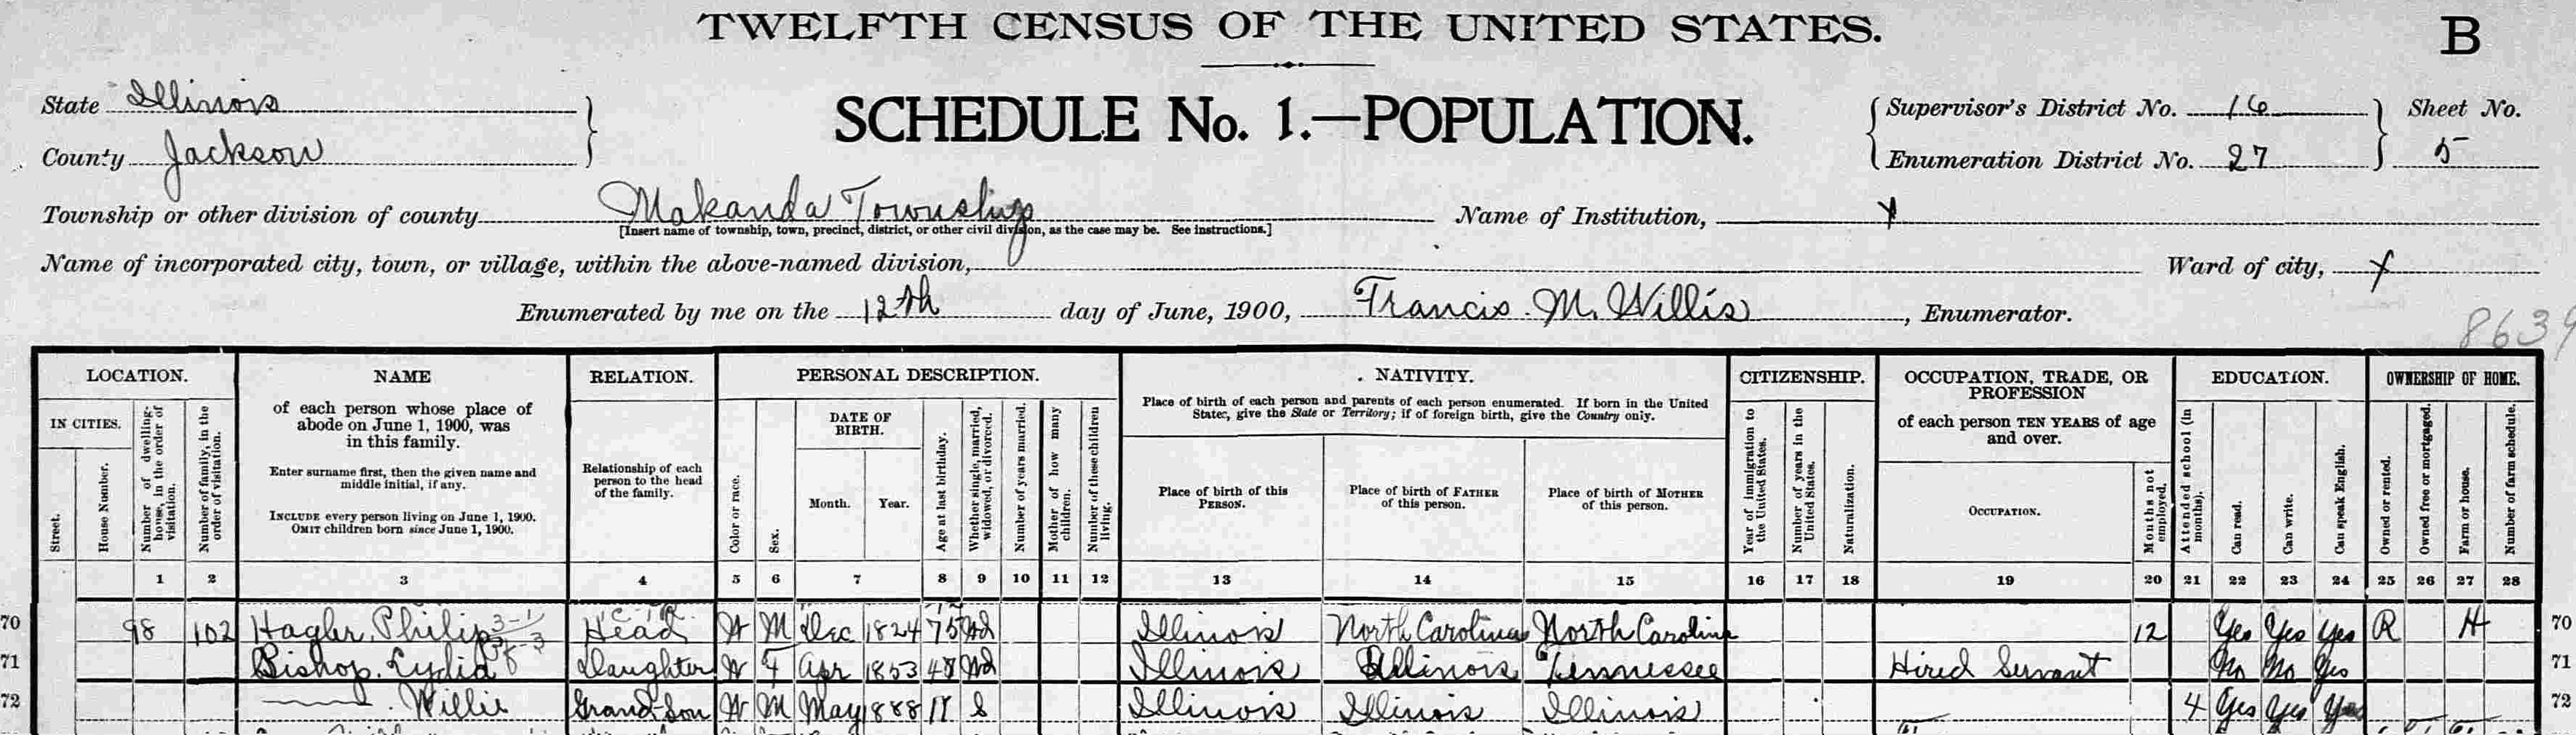 TWELFTH CENSUS OF THE UNITED STATES.
B
State Illinois
County Jackson
SCHEDULE No. 1.—POPULATION.
Supervisor's District No. 16
Enumeration District No. 27
Sheet No.
5
Township or other division of county Makanda Township
[Insert name of township, town, precinct, district, or other civil division, as the case may be. See instructions.]
Name of Institution, X
Name of incorporated city, town, or village, within the above-named division,
Ward of city, X
Enumerated by me on the 12th day of June, 1900, Francis M. Willis, Enumerator.
8639
LOCATION.
IN CITIES.
Street.
House Number.
Number of dwelling-house, in the order of visitation.
Number of family, in the order of visitation.
NAME
of each person whose place of
abode on June 1, 1900, was
in this family.
Enter surname first, then the given name and
middle initial, if any.
INCLUDE every person living on June 1, 1900.
OMIT children born since June 1, 1900.
RELATION.
Relationship of each
person to the head
of the family.
PERSONAL DESCRIPTION.
Color or race.
Sex.
DATE OF
BIRTH.
Month.
Year.
Age at last birthday.
Whether single, married, widowed, or divorced.
Number of years married.
Mother of how many children.
Number of these children living.
. NATIVITY.
Place of birth of each person and parents of each person enumerated. If born in the United
States, give the State or Territory; if of foreign birth, give the Country only.
Place of birth of this
PERSON.
Place of birth of FATHER
of this person.
Place of birth of MOTHER
of this person.
CITIZENSHIP.
Year of immigration to the United States.
Number of years in the United States.
Naturalization.
OCCUPATION, TRADE, OR
PROFESSION
of each person TEN YEARS of age
and over.
OCCUPATION.
Months not employed.
EDUCATION.
Attended school (in months).
Can read.
Can write.
Can speak English.
OWNERSHIP OF HOME.
Owned or rented.
Owned free or mortgaged.
Farm or house.
Number of farm schedule.
1 2 3 4 5 6 7 8 9 10 11 12 13 14 15 16 17 18 19 20 21 22 23 24 25 26 27 28
70 98 102 Hagler, Philip Head W M Dec 1824 75 Wd Illinois North Carolina North Carolina 12 Yes Yes Yes R H 70
71 Bishop, Lydia Daughter W F Apr 1853 47 Wd Illinois Illinois Tennessee Hired Servant No No Yes 71
72 —— . Willie Grand Son W M May 1888 S Illinois Illinois Illinois 4 Yes Yes Yes 72